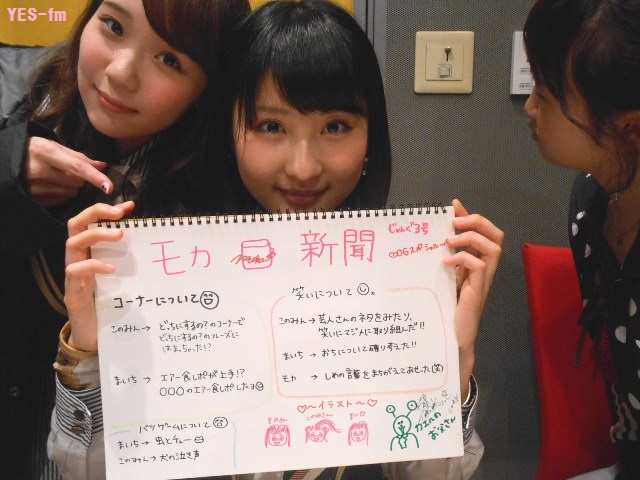 YES-fm
モカ 新聞
じゃんぐ3号
♡OGスペシャル
コーナーについて
このみん→ どっちにするの?のコーナーで
どっちにするの?のフレーズに
はまっちゃった!?
まいち → エアー食レポが上手!?
○○○のエアー食レポしたヨ
バツゲームについて
まいち→ 虫とチュー
このみん→ 犬の泣き声
笑いについて
このみん→ 芸人さんのネタをみたり、
笑いにマジメに取り組んだ!!
まいち → おちについて語り考えた!!
モカ → しめの言葉をまちがえてあせった(笑)
♡〜イラスト〜♡
モカさん
このみさん
まい
カエルの
おじさん